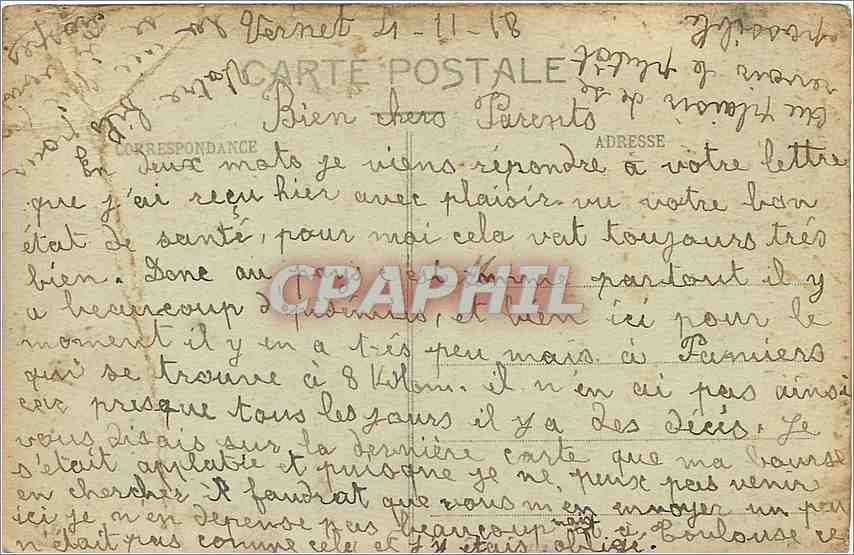 Vernet 4-11-18
CARTE POSTALE
Bien chers Parents
CORRESPONDANCE
ADRESSE
En deux mots je viens répondre a votre lettre
que j'ai reçu hier avec plaisir vu votre bon
état de santé, pour moi cela vat toujours trés
bien. Donc au pays c'est comme partout il y
CPAPHIL
a beaucoup de, et bien ici pour le
moment il y en a trés peu mais à Pamiers
qui se trouve à 8 Kilom. il n'en ai pas ainsi
car presque tous les jours il y a des décés. Je
vous disais sur la dernière carte que ma bourse
s'était applatie et puisque je ne peux pas venir
en chercher il faudrat que vous m'en envoyer un peu
ici je n'en dépense pas beaucoup mais à Toulouse ce
n'était pas comme cela et j'y étais obligé.
Au plaisir de se
revoir le plutôt
possible
Votre fils